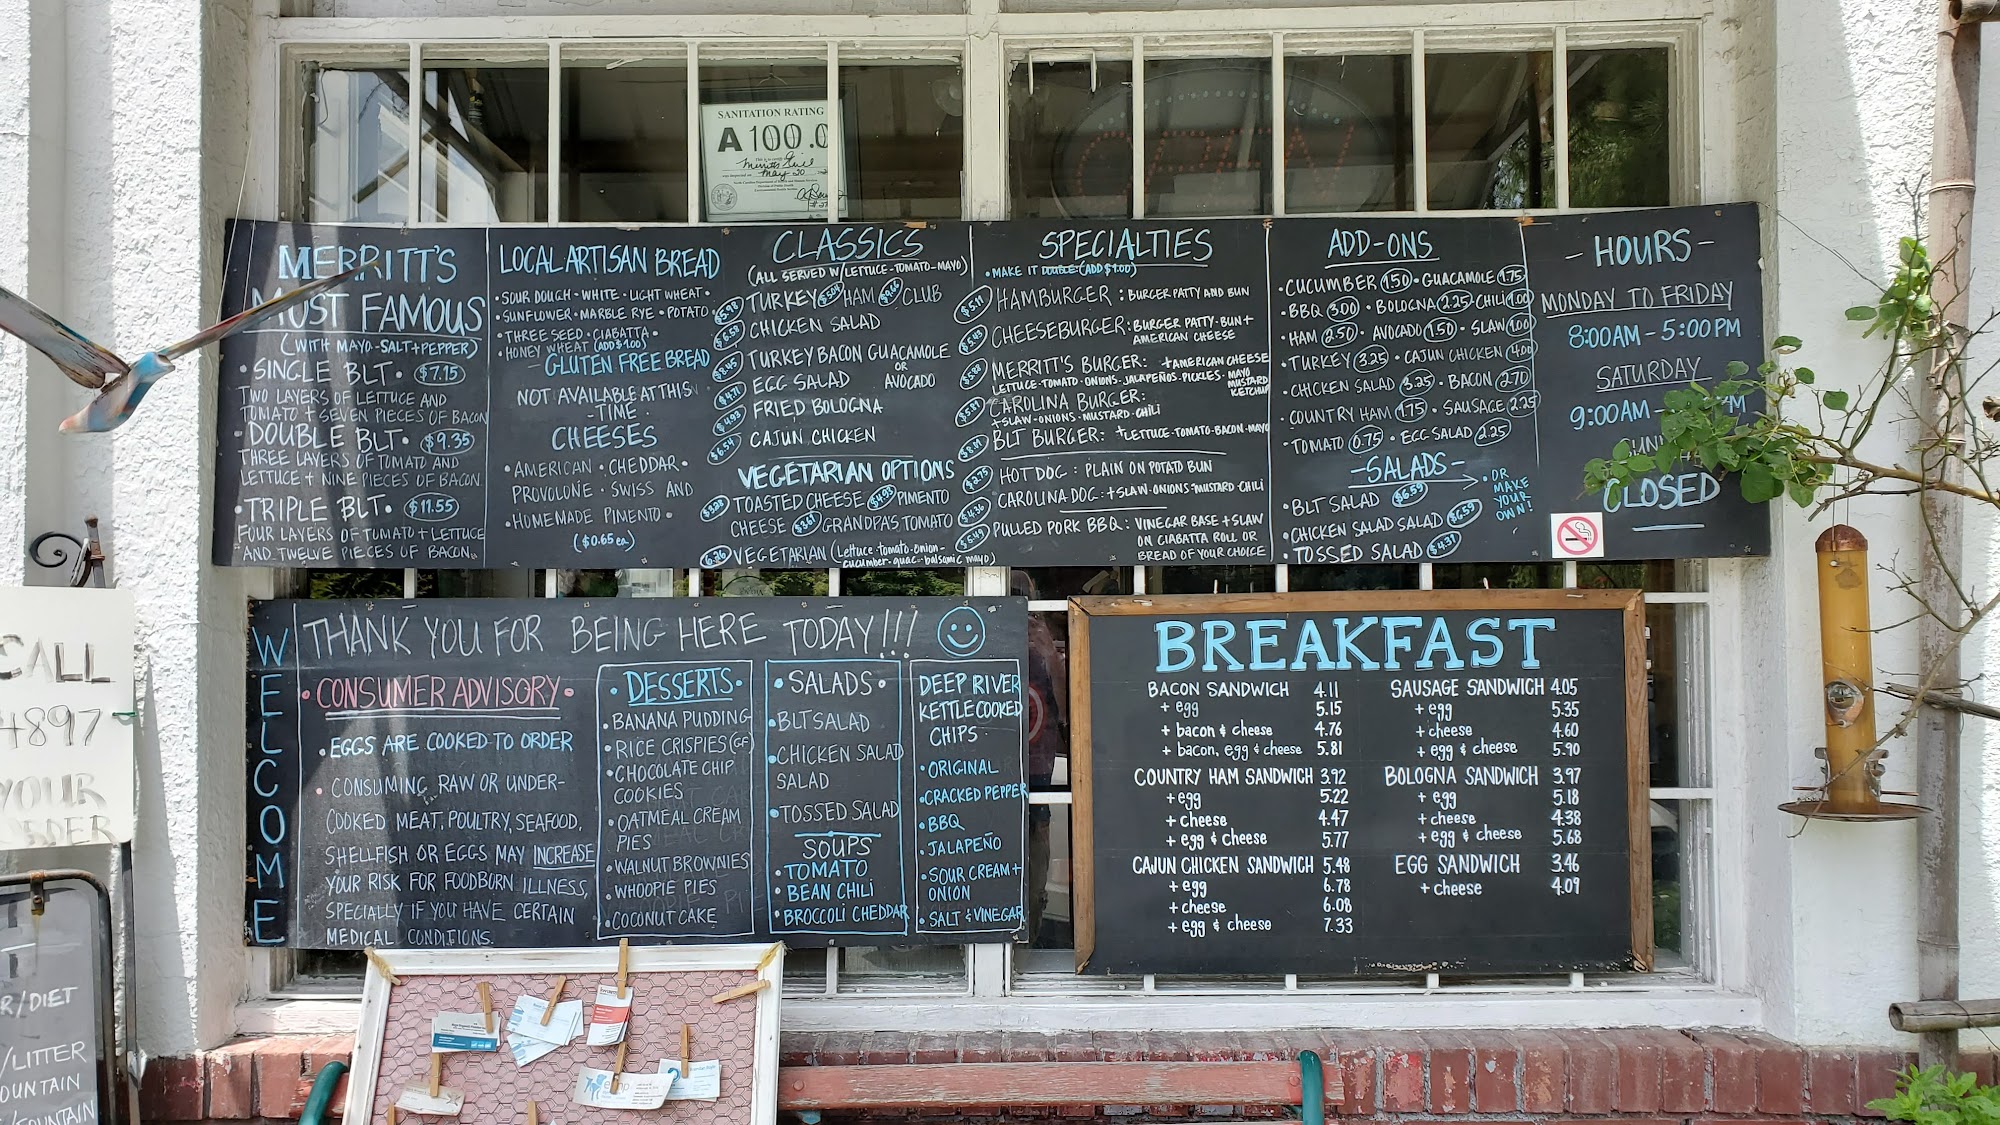 SANITATION RATING
A 100.0
MERRITT'S
MOST FAMOUS
(WITH MAYO-SALT+PEPPER)
• SINGLE BLT • $7.15
TWO LAYERS OF LETTUCE AND
TOMATO + SEVEN PIECES OF BACON
• DOUBLE BLT • $9.35
THREE LAYERS OF TOMATO AND
LETTUCE + NINE PIECES OF BACON
• TRIPLE BLT • $11.55
FOUR LAYERS OF TOMATO + LETTUCE
AND TWELVE PIECES OF BACON
LOCAL ARTISAN BREAD
• SOUR DOUGH • WHITE • LIGHT WHEAT •
• SUNFLOWER • MARBLE RYE • POTATO
• THREE SEED • CIABATTA •
• HONEY WHEAT (ADD $1.00)
- GLUTEN FREE BREAD
NOT AVAILABLE AT THIS
- TIME -
CHEESES
• AMERICAN • CHEDDAR •
PROVOLONE • SWISS AND
• HOMEMADE PIMENTO •
($0.65 ea.)
CLASSICS
(ALL SERVED W/LETTUCE-TOMATO-MAYO)
$5.98 TURKEY HAM CLUB
$6.58 CHICKEN SALAD
$8.45 TURKEY BACON GUACAMOLE
OR
AVOCADO
$4.71 EGG SALAD
$4.93 FRIED BOLOGNA
$6.54 CAJUN CHICKEN
VEGETARIAN OPTIONS
$3.22 TOASTED CHEESE $4.93 PIMENTO
CHEESE $3.61 GRANDPA'S TOMATO
6.26 VEGETARIAN (Lettuce-tomato-onion-
cucumber-guac-balsamic mayo)
SPECIALTIES
• MAKE IT DOUBLE (ADD $1.00)
$5.11 HAMBURGER : BURGER PATTY AND BUN
$5.45 CHEESEBURGER: BURGER PATTY • BUN +
AMERICAN CHEESE
$5.88 MERRITT'S BURGER: +AMERICAN CHEESE
LETTUCE-TOMATO-ONIONS-JALAPEÑOS-PICKLES- MAYO
MUSTARD
KETCHUP
$5.87 CAROLINA BURGER:
+SLAW-ONIONS-MUSTARD-CHILI
$8.89 BLT BURGER: +LETTUCE-TOMATO-BACON-MAYO
$2.75 HOT DOG : PLAIN ON POTATO BUN
$4.36 CAROLINA DOG: +SLAW-ONIONS-MUSTARD-CHILI
$5.49 PULLED PORK BBQ: VINEGAR BASE + SLAW
ON CIABATTA ROLL OR
BREAD OF YOUR CHOICE
ADD-ONS
• CUCUMBER 1.50 • GUACAMOLE 1.75
• BBQ 3.00 • BOLOGNA 2.25 CHILI 1.00
• HAM 2.50 • AVOCADO 1.50 • SLAW 1.00
• TURKEY 3.25 • CAJUN CHICKEN 4.00
• CHICKEN SALAD 3.25 • BACON 2.70
• COUNTRY HAM 1.75 • SAUSAGE 2.25
• TOMATO 0.75 • EGG SALAD 2.25
- SALADS -
• BLT SALAD $6.59
• CHICKEN SALAD SALAD $6.59
• TOSSED SALAD $4.31
• OR
MAKE
YOUR
OWN!
- HOURS -
MONDAY TO FRIDAY
8:00AM - 5:00PM
SATURDAY
9:00AM -
CLOSED
WELCOME
THANK YOU FOR BEING HERE TODAY!!!
• CONSUMER ADVISORY •
• EGGS ARE COOKED TO ORDER
• CONSUMING RAW OR UNDER-
COOKED MEAT, POULTRY, SEAFOOD,
SHELLFISH OR EGGS MAY INCREASE
YOUR RISK FOR FOODBORN ILLNESS,
SPECIALLY IF YOU HAVE CERTAIN
MEDICAL CONDITIONS.
• DESSERTS •
• BANANA PUDDING
• RICE CRISPIES (GF)
• CHOCOLATE CHIP
COOKIES
• OATMEAL CREAM
PIES
• WALNUT BROWNIES
• WHOOPIE PIES
• COCONUT CAKE
• SALADS •
• BLT SALAD
• CHICKEN SALAD
SALAD
• TOSSED SALAD
SOUPS
• TOMATO
• BEAN CHILI
• BROCCOLI CHEDDAR
DEEP RIVER
KETTLE COOKED
CHIPS
• ORIGINAL
• CRACKED PEPPER
• BBQ
• JALAPEÑO
• SOUR CREAM +
ONION
• SALT & VINEGAR
BREAKFAST
BACON SANDWICH 4.11
+ egg 5.15
+ bacon & cheese 4.76
+ bacon, egg & cheese 5.81
COUNTRY HAM SANDWICH 3.92
+ egg 5.22
+ cheese 4.47
+ egg & cheese 5.77
CAJUN CHICKEN SANDWICH 5.48
+ egg 6.78
+ cheese 6.08
+ egg & cheese 7.33
SAUSAGE SANDWICH 4.05
+ egg 5.35
+ cheese 4.60
+ egg & cheese 5.90
BOLOGNA SANDWICH 3.97
+ egg 5.18
+ cheese 4.38
+ egg & cheese 5.68
EGG SANDWICH 3.46
+ cheese 4.09
CALL
4897
YOUR
ORDER
R/DIET
/LITTER
OUNTAIN